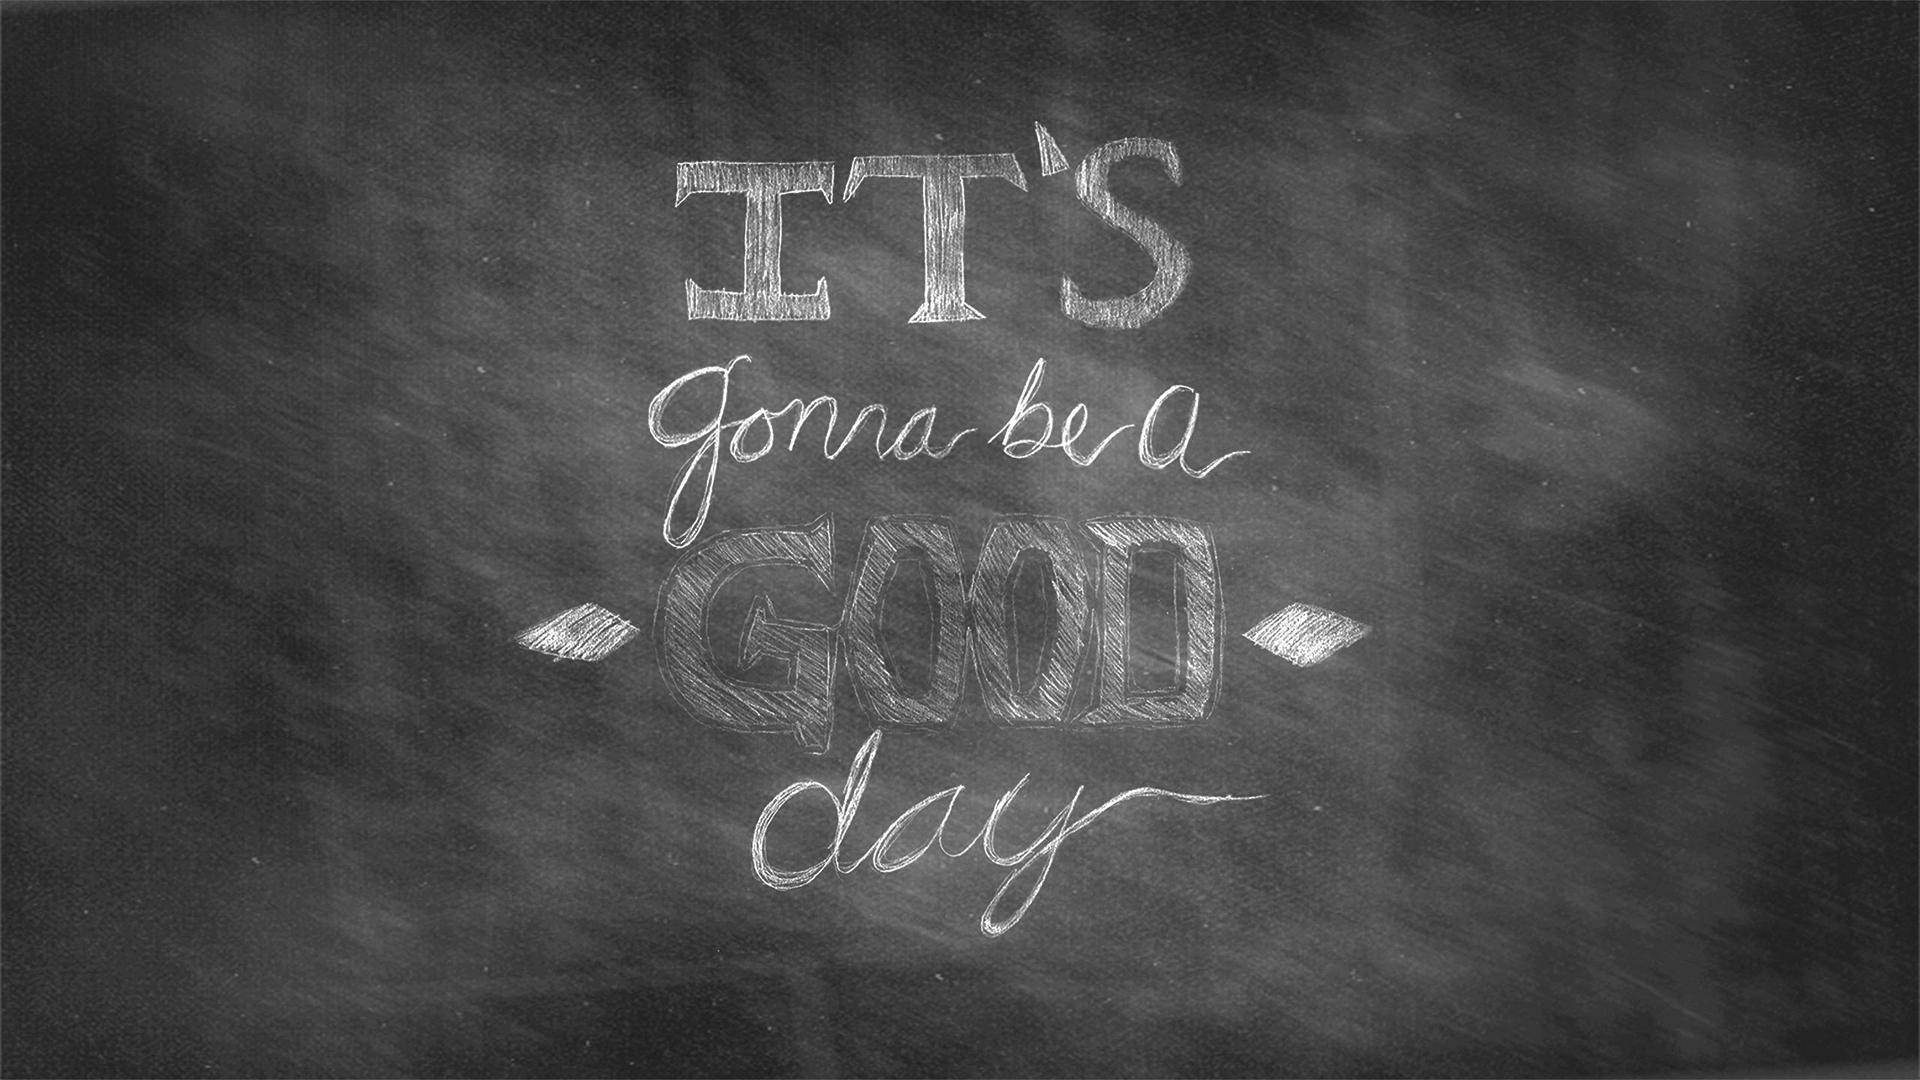 IT'S
gonna be a
GOOD
day